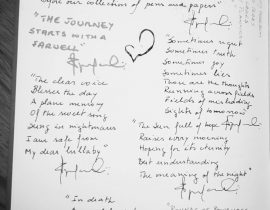 our collection of pens and papers"
"THE JOURNEY
STARTS WITH A
FARWELL"
"The clear voice
Blesses the day
A plane memory
Of the sweet song
Sung in nightmares
I am safe from
My dear 'lullaby"
"In death
"Sometimes right
Sometimes truth
Sometimes joy
Sometimes lies
These are the thoughts
Running across fields
Fields of misleading
Sights of tomorrow"
"The Sun, full of hope
Raises every morning
Hoping for its eternity
But understanding
The meaning of the night"